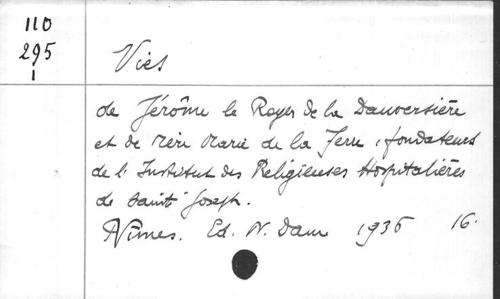 110
295
1
Vies
de Jérôme le Royer de la Dauversière
et de Mère Marie de la Ferre, fondateurs
de l'Institut des Religieuses Hospitalières
de Saint Joseph.
Nîmes. Ed. N. Dame 1936 16.